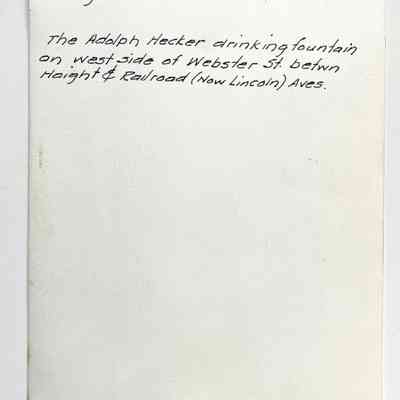 The Adolph Hecker drinking fountain
on west side of Webster St. betwn
Haight & Railroad (Now Lincoln) Aves.